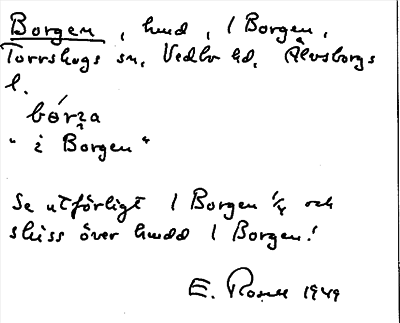 Borgen, hmd, 1 Borgen,
Torrskogs sn, Vedbo hd, Älvsborgs
l.
bórza
"i Borgen"
Se utförligt 1 Borgen 1/4 och
skiss över hmdd 1 Borgen!
E. Rosell 1949